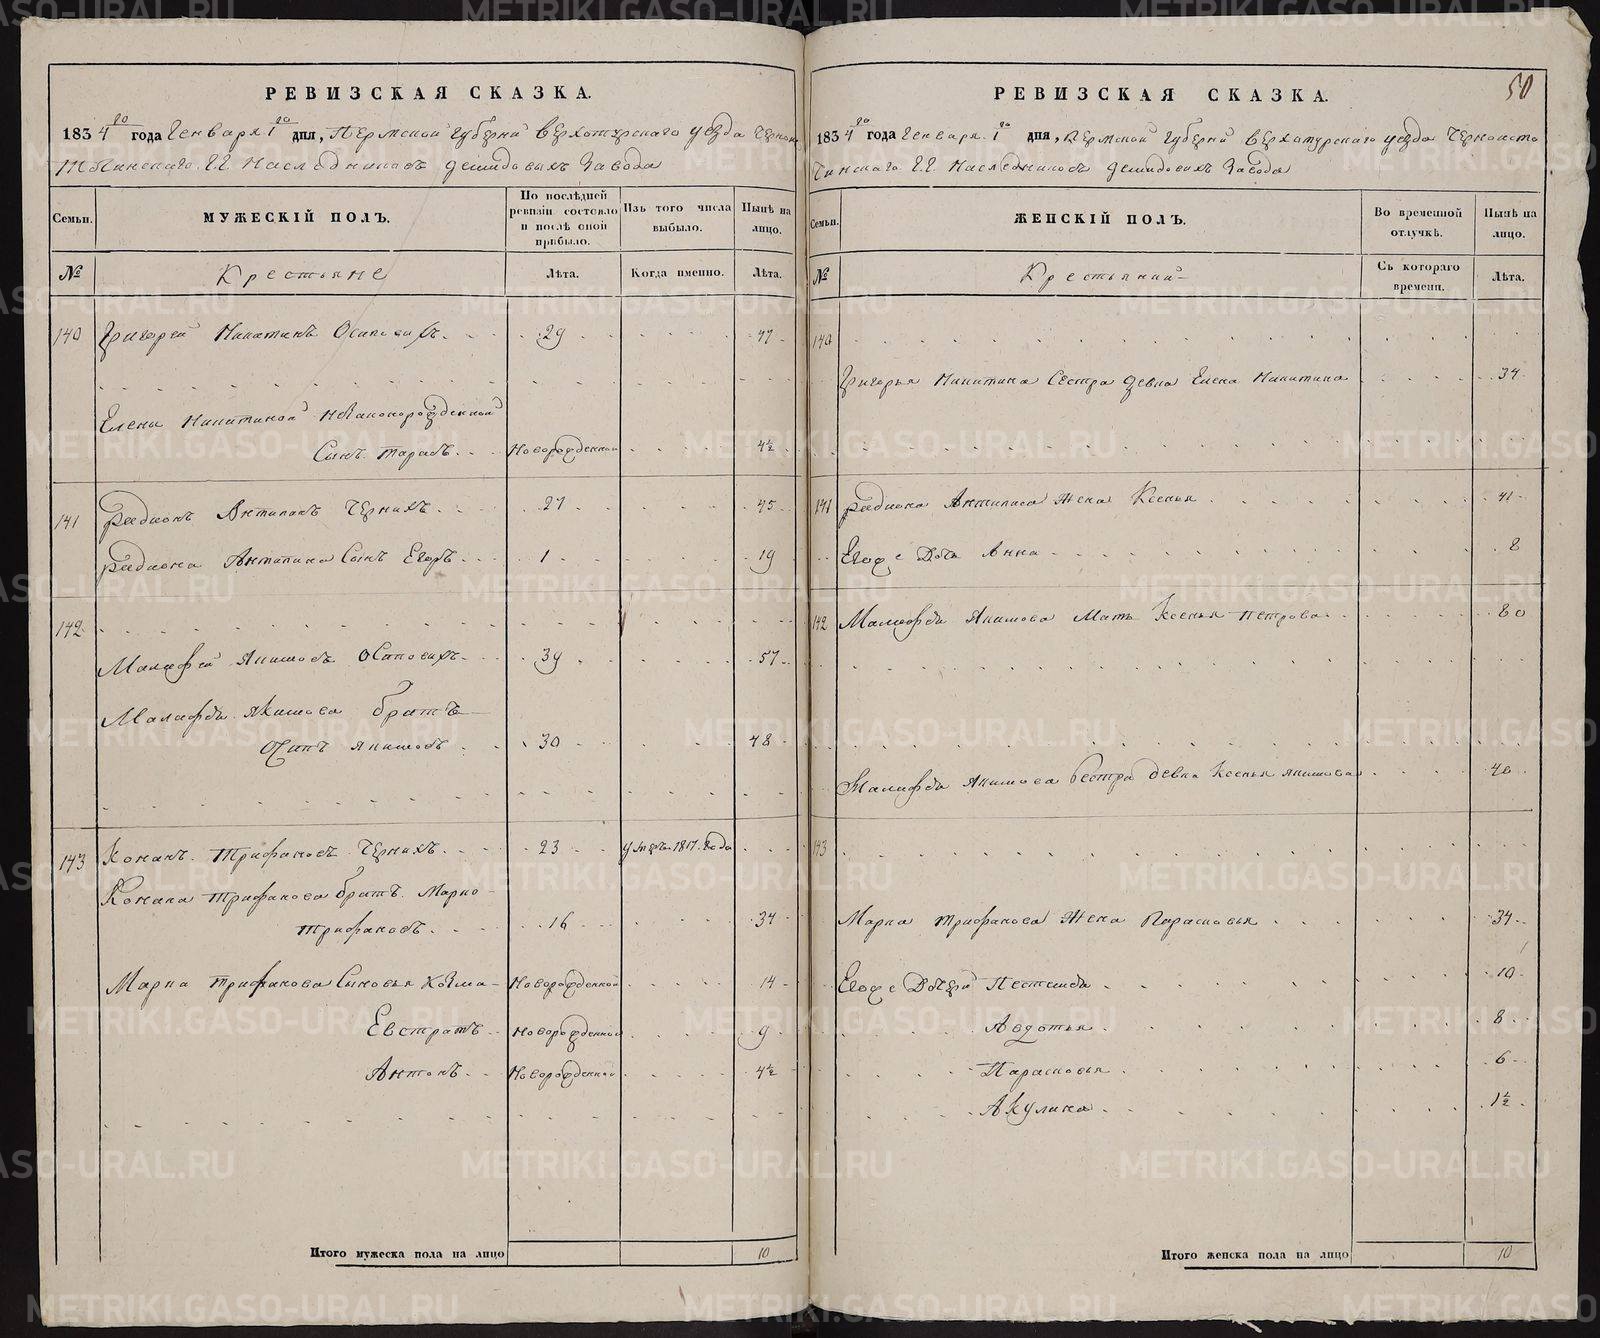 50
РЕВИЗСКАЯ СКАЗКА.
1834го года Генваря 1го дня, Пермской Губерній Верхотурскаго уезда Черноис
точинскаго Г.Г. Наследниковъ Демидовыхъ Завода
Семьи. МУЖЕСКІЙ ПОЛЪ. По послѣдней ревизіи состояло и послѣ оной прибыло. Изъ того числа выбыло. Нынѣ на лицо.
№ Крестьяне Лѣта. Когда именно. Лѣта.
140 Григорей Никитинъ Осиповыхъ 29 47
Елены Никитиной незаконорожденной
Сынъ Тарасъ Новорожденной 4½
141 Радионъ Антипинъ Черныхъ 27 45
Радиона Антипина Сынъ Егоръ 1 19
142
Малафей Якимовъ Осиповыхъ 39 57
Малафья Якимова братъ
Осипъ Якимовъ 30 48
143 Кононъ Трифановъ Черныхъ 23 умеръ 1817 года
Конона Трифанова братъ Марко
Трифановъ 16 34
Марка Трифанова Сыновья Козма Новорожденной 14
Евстратъ Новорожденной 9
Антонъ Новорожденной 4½
Итого мужеска пола на лицо 10
РЕВИЗСКАЯ СКАЗКА.
1834го года Генваря 1го дня, Пермской Губерній Верхотурскаго уезда Черноисто
чинскаго Г.Г. Наследниковъ Демидовыхъ Завода
Семьи. ЖЕНСКІЙ ПОЛЪ. Во временной отлучкѣ. Нынѣ на лицо.
№ Съ котораго времени. Лѣта.
140
Григорья Никитина Сестра девка Елена Никитина 34
141 Радиона Антипина Жена Ксенья 41
Егоже Дочь Анна 8
142 Малафья Якимова Мать Ксенья Петрова 80
Малафья Якимова Сестра девка Ксенья Якимова 40
143
Марка Трифанова Жена Парасковья 34
Егоже Дочери 10
Авдотья 8
Парасковья 6
Акулина 1½
Итого женска пола на лицо 10